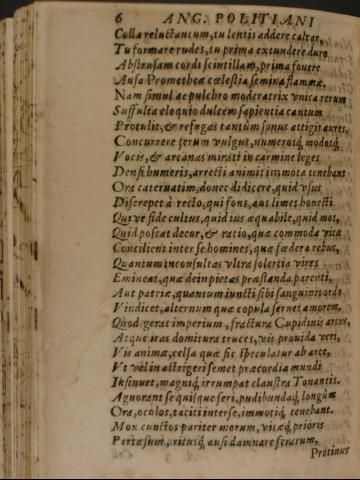 6 ANG. POLITIANI
Colla reluctantum, tu lentis addere calcar,
Tu formare rudes, tu prima extundere duro
Abstrusam cordi scintillam, prima fouere
Ausa Prometheæ cœlestia semina flammæ.
Nam simul ac pulchro moderatrix vnica rerum
Suffulta eloquio dulcem sapientia cantum
Protulit, & refugas tantùm sonus attigit aures,
Concurrere ferum vulgus, numerosq́, modosq́
Vocis, & arcanas mirati in carmine leges
Densi humeris, arrecti animis immota tenebant
Ora cateruatim, donec didicere, quid vsus
Discrepet à recto, qui fons, aut limes honesti
Quiue fide cultus, quid ius æquabile, quid mos,
Quid poscat decor, & ratio, quæ commoda vitæ
Concilient inter se homines, quæ fœdera rebus,
Quantum inconsultas vltra solertia vires
Emineat, quæ dein pietas præstanda parenti,
Aut patriæ, quantum iuncti sibi sanguinis ordo
Vindicet, alternum quæ copula seruet amorem.
Quod gerat imperium, fractura Cupidinis arcus,
Atque iras domitura truces, vis prouida veri,
Vis animæ, celsa quæ sic speculatur ab arce,
Vt vel in astrigeri semet præcordia mundi
Insinuet, magniq́, irrumpat claustra Tonantis.
Agnorant se quisque feri, pudibundaq́, longùm
Ora, oculos, taciti inter se, immotiq́, tenebant.
Mox cunctos pariter morum, vitæq́, prioris
Pertæsum, ritusq́, ausi damnare ferarum,
Protinus